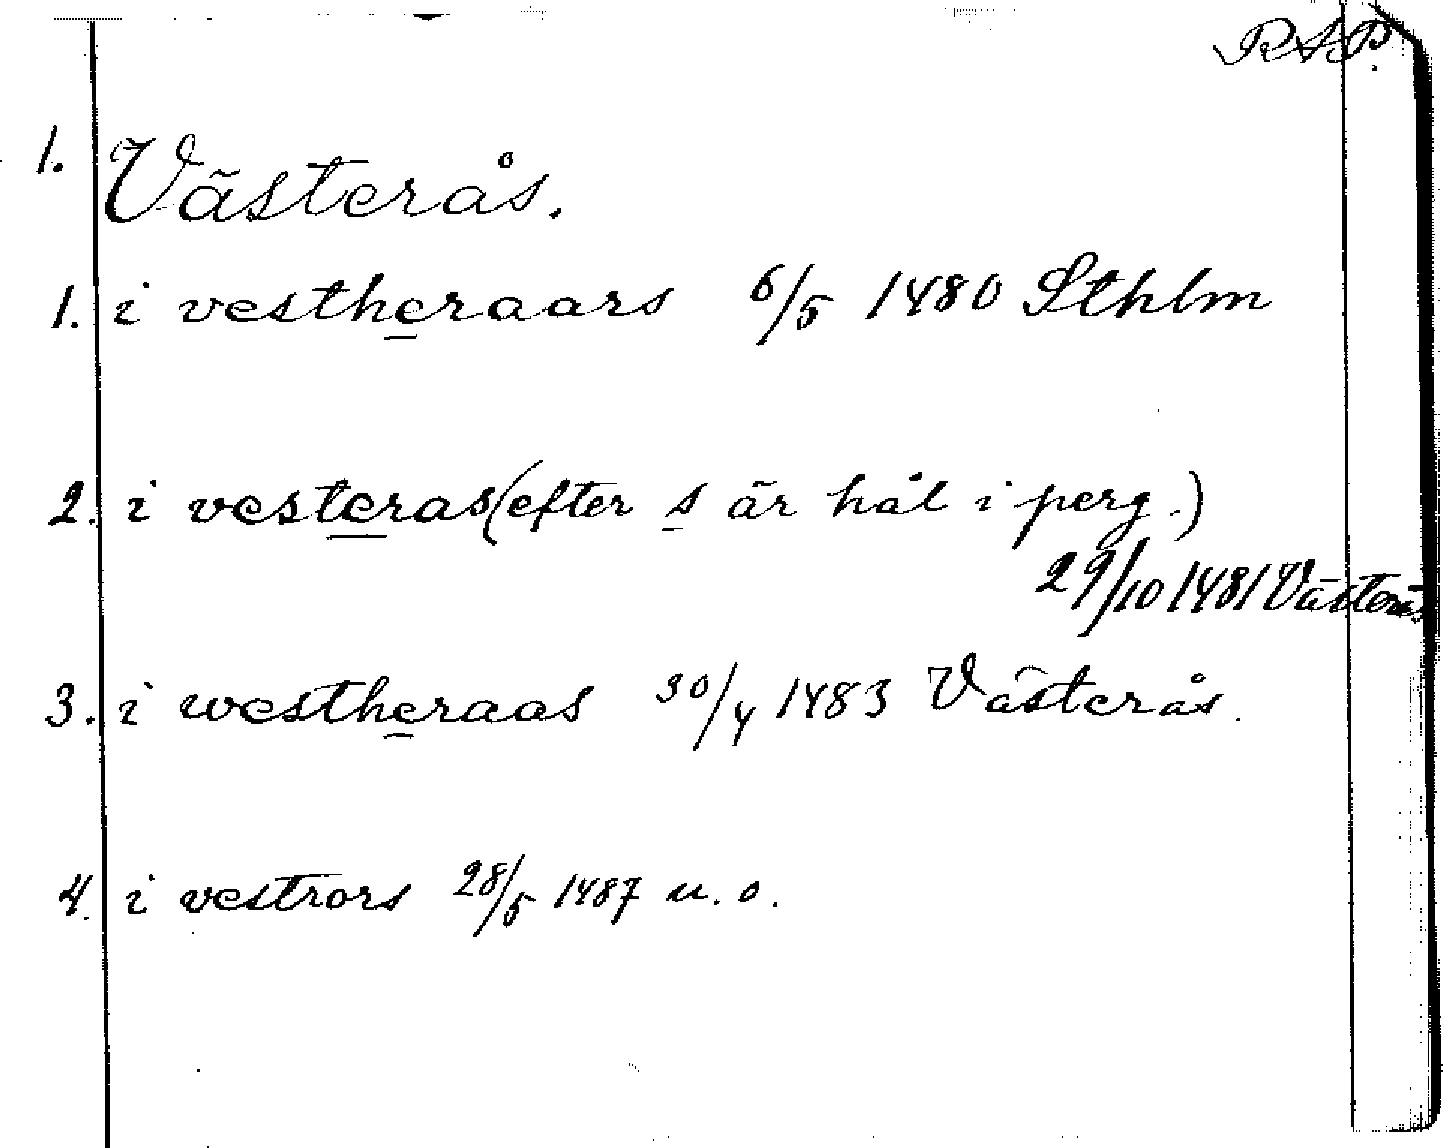 RAP.
1. Västerås.
1. i vestheraars 6/5 1480 Sthlm
2. i vesteras (efter s är hål i perg.)
29/10 1481 Västerås
3. i westheraas 30/4 1483 Västerås.
4. i vestrors 28/5 1487 u. o.